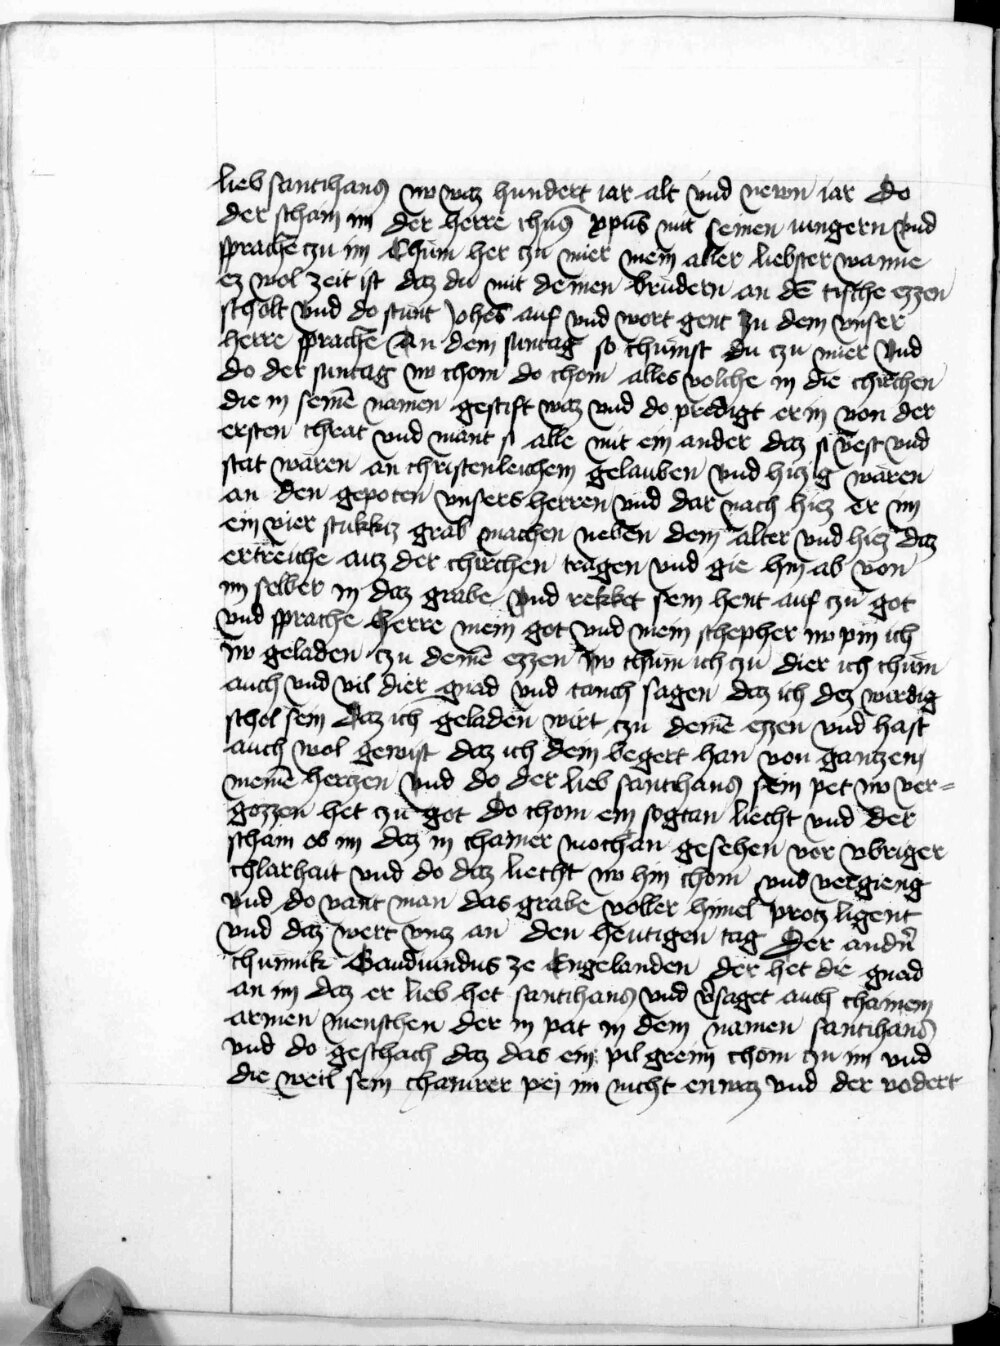 lieb santihans nw waz hundert iar alt vnd newn iar Do
der schain im der herre ihūs xpūs mit seinen iungern vnd
sprache czu im Chum her czu mier mein aller liebster wanne
ez wol zeit ist daz du mit deinen brudern an dē tische ezzen
scholt vnd do stunt Johēs auf vnd wort gent zu dem vnser
herre sprache An dem suntag so chumst du czu mier vnd
do der suntag nw chom do chom alles volche in die chirchen
die in seinē namen gestift waz vnd do predigt er in von der
ersten chrat vnd mant si alle mit ein ander daz si vest vnd
stat waren an christenleichem gelauben vnd hizig waren
an den gepoten vnsers herren vnd dar nach hiez er im
ein vier stukkiz grab machen neben dem alter vnd hiez daz
ertreiche auz der chirchen tragen vnd gie hin ab von
im selber in daz grabe vnd rekket sein hent auf czu got
vnd sprache herre mein got vnd mein schepher nw pin ich
nw geladen czu deinē ezzen nw chum ich czu dier ich chum
auch vnd vil dier gnad vnd tanch sagen daz ich dez wirdig
schol sein daz ich geladen wirt czu deinē ezzen vnd hast
auch wol gewist daz ich dein begert han von ganzem
meinē herczen vnd do der lieb santihans sein pet nw ver=
gozzen het czu got do chom ein sogtan liecht vnd der
schain ob im daz in chainer mocht an gesehen vor vbriger
chlarhait vnd do daz liecht nw hin chom vnd vergieng
vnd do vant man das grabe voller himel protz ligent
vnd daz wert vnz an den heutigen tag Der andn̄
chunnik Gauduindus ze Engelanden der het die gnad
an im daz er lieb het santihans vnd v̄saget auch chainem
armen menschen der in pat in dem namen santihans
vnd do geschach daz das ein pilgreim chom czu im vnd
die weil sein chamrer pei im nicht enwaz vnd der vodert